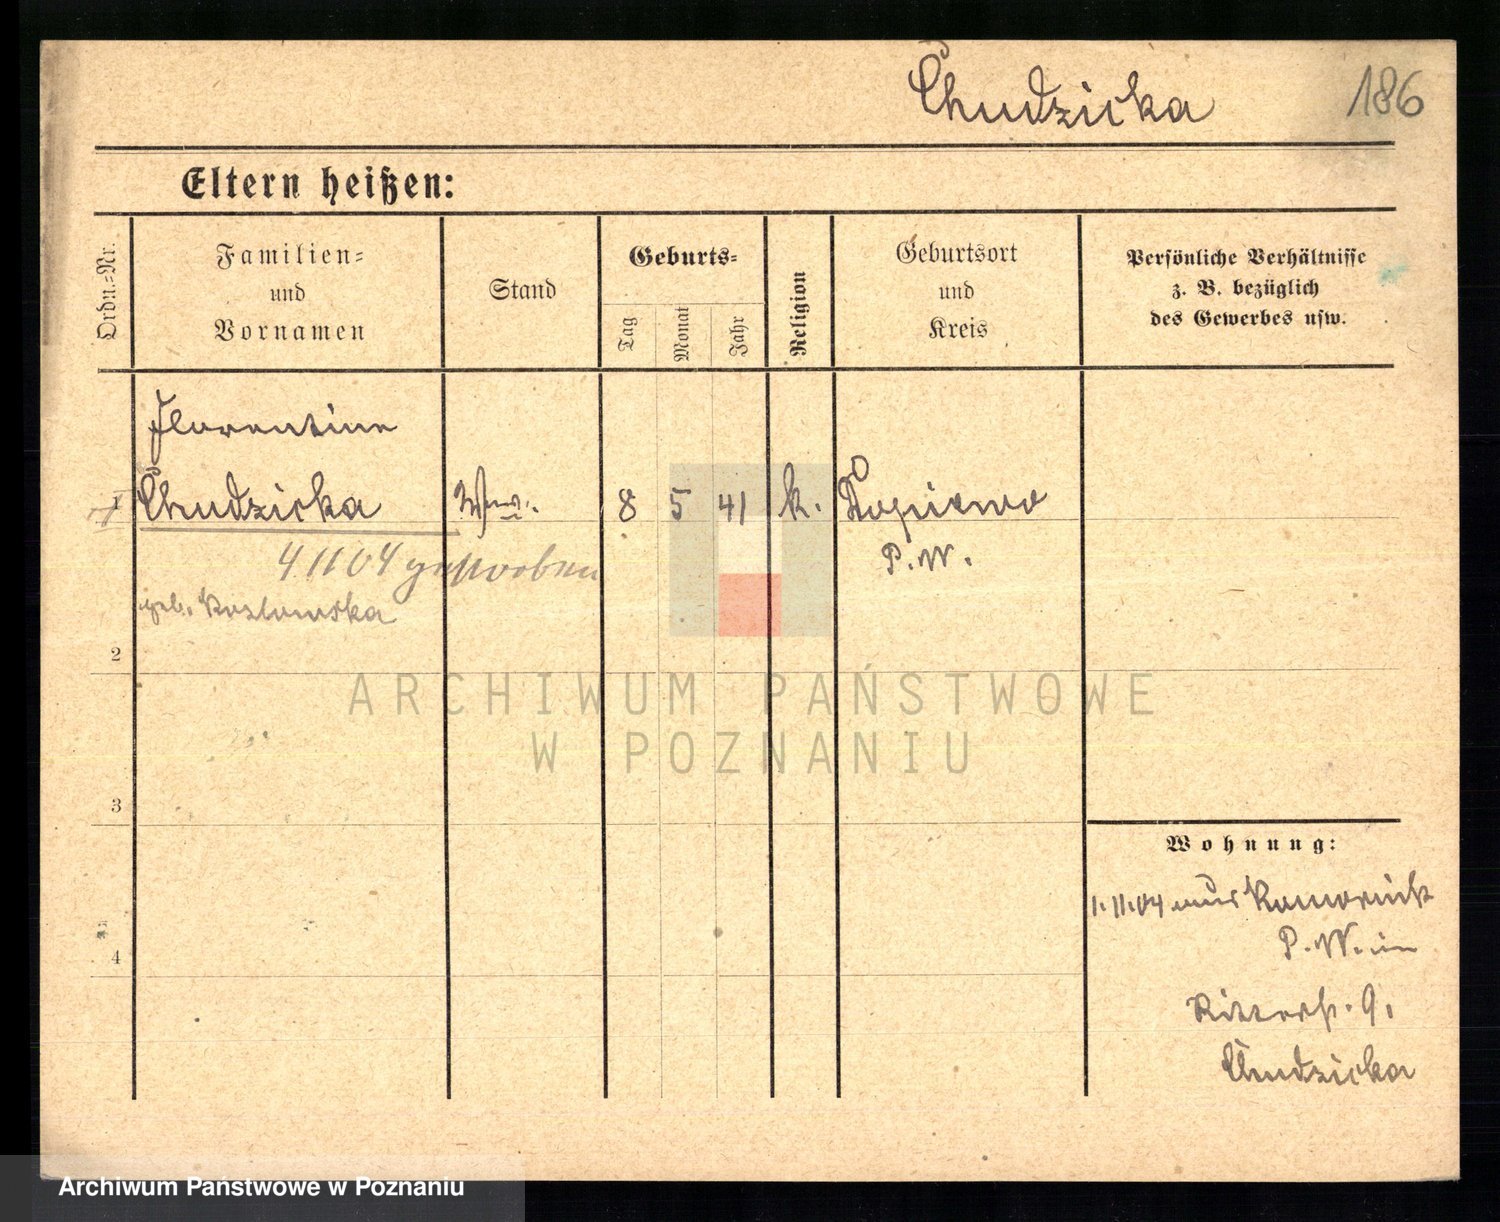 Chudzicka
186
Eltern heißen:
Ordn.-Nr.
Familien-
und
Vornamen
Stand
Geburts-
Tag
Monat
Jahr
Religion
Geburtsort
und
Kreis
Persönliche Verhältnisse
z. B. bezüglich
des Gewerbes usw.
Florentine
1 Chudzicka Wwe. 8 5 41 k. Dopiewo
P. W.
4 11 04 gestorben
geb. Kozlowska
2
ARCHIWUM PAŃSTWOWE
W POZNANIU
3
Wohnung:
1.11.04 aus Komornik
P. W. in
4
Ritterst. 9.
Chudzicka
Archiwum Państwowe w Poznaniu